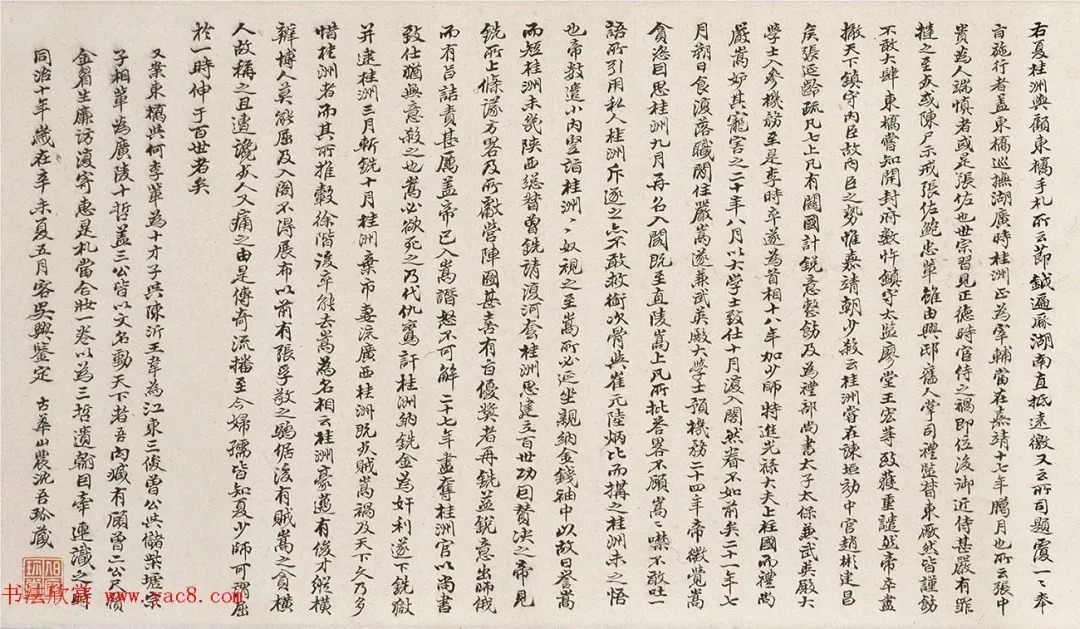 右夏桂洲與顧東橋手札所云節鉞遍厤湖南直抵遠徼又云所司題覆一一奉
旨施行者蓋東橋巡撫湖廣時桂洲正為宰輔當在嘉靖十七年臘月也所云張中
貴為人端慎者或是張佐也世宗習見正德時宦侍之禍即位後御近侍甚嚴有罪
撻之至死或陳尸示戒張佐鮑忠輩雖由興邸舊人掌司禮監督東厰然皆謹飭
不敢大肆東橋嘗知開封府數忤鎮守太監廖堂王宏等致蘉重譴然帝卒盡
撤天下鎮守內臣故內臣之勢惟嘉靖朝少殺云桂洲嘗在諫垣劾中官趙彬建昌
矦張延齡疏凡七上凡有關國計銳意整飭及為禮部尚書太子太保兼武英殿大
學士入參機務至是李時卒遂為首相十八年加少師特進光祿大夫上柱國而禮尚
嚴嵩妒其寵害之二十年八月以大學士致仕十月復入閣然眷不如前矣二十一年七
月朔日食復落職閒住嚴嵩遂兼武英殿大學士預機務二十四年帝微覺嵩
貪恣因思桂洲九月再召入閣既至直陵嵩上凡所批荅畧不顧嵩嵩噤不敢吐一
語所引用私人桂洲斥逐之亦不敢救銜次骨與崔元陸炳比而搆之桂洲未之悟
也帝數遣小內豎詣桂洲桂洲奴視之至嵩所必延坐親納金錢袖中以故日譽嵩
而短桂洲未幾陝西總督曾銑請復河套桂洲思建立百世功因贊决之帝見
銑所上條議方畧及所獻營陣圖甚喜有旨優奬者再銑益銳意出師俄
而有旨詰責甚厲蓋帝已入嵩譖怒不可解二十七年盡奪桂洲官以尚書
致仕猶無意殺之也嵩必欲死之乃代仇鸞訐桂洲納銑金為奸利遂下銑獄
并逮桂洲三月斬銑十月桂洲棄市妻流廣西桂洲既死賊嵩禍及天下久乃多
惜桂洲者而其所推轂徐階後卒能去嵩為名相云桂洲豪邁有俊才縱橫
辯博人莫能屈及入閣不得展布以前有張孚敬之驕倨後有賊嵩之貪橫
人故稱之且遭讒死人又痛之由是傳奇流播至今婦孺皆知夏少師可謂屈
於一時伸于百世者矣
又案東橋與何李輩為十才子與陳沂王韋為江東三俊曾公與儲柴墟宗
子相輩為廣陵十哲蓋三公皆以文名動天下者吾內藏有顧曾二公尺牘
金眉生廉訪復寄惠是札當合妝一卷以為三哲遺翰因牽連識之時
同治十年歲在辛未夏五月客吳興鑒定 古華山農沈吾珍藏
书法欣赏 www.yac8.com